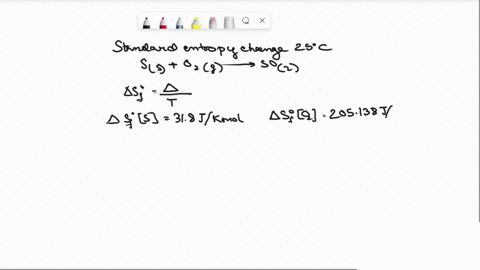 Standard entropy change 25°C
S(s) + O2(g) → SO(2)
ΔSf° = Δ/T
ΔSf°[S] = 31.8 J/Kmol ΔSf°[O2] = 205.138 J/